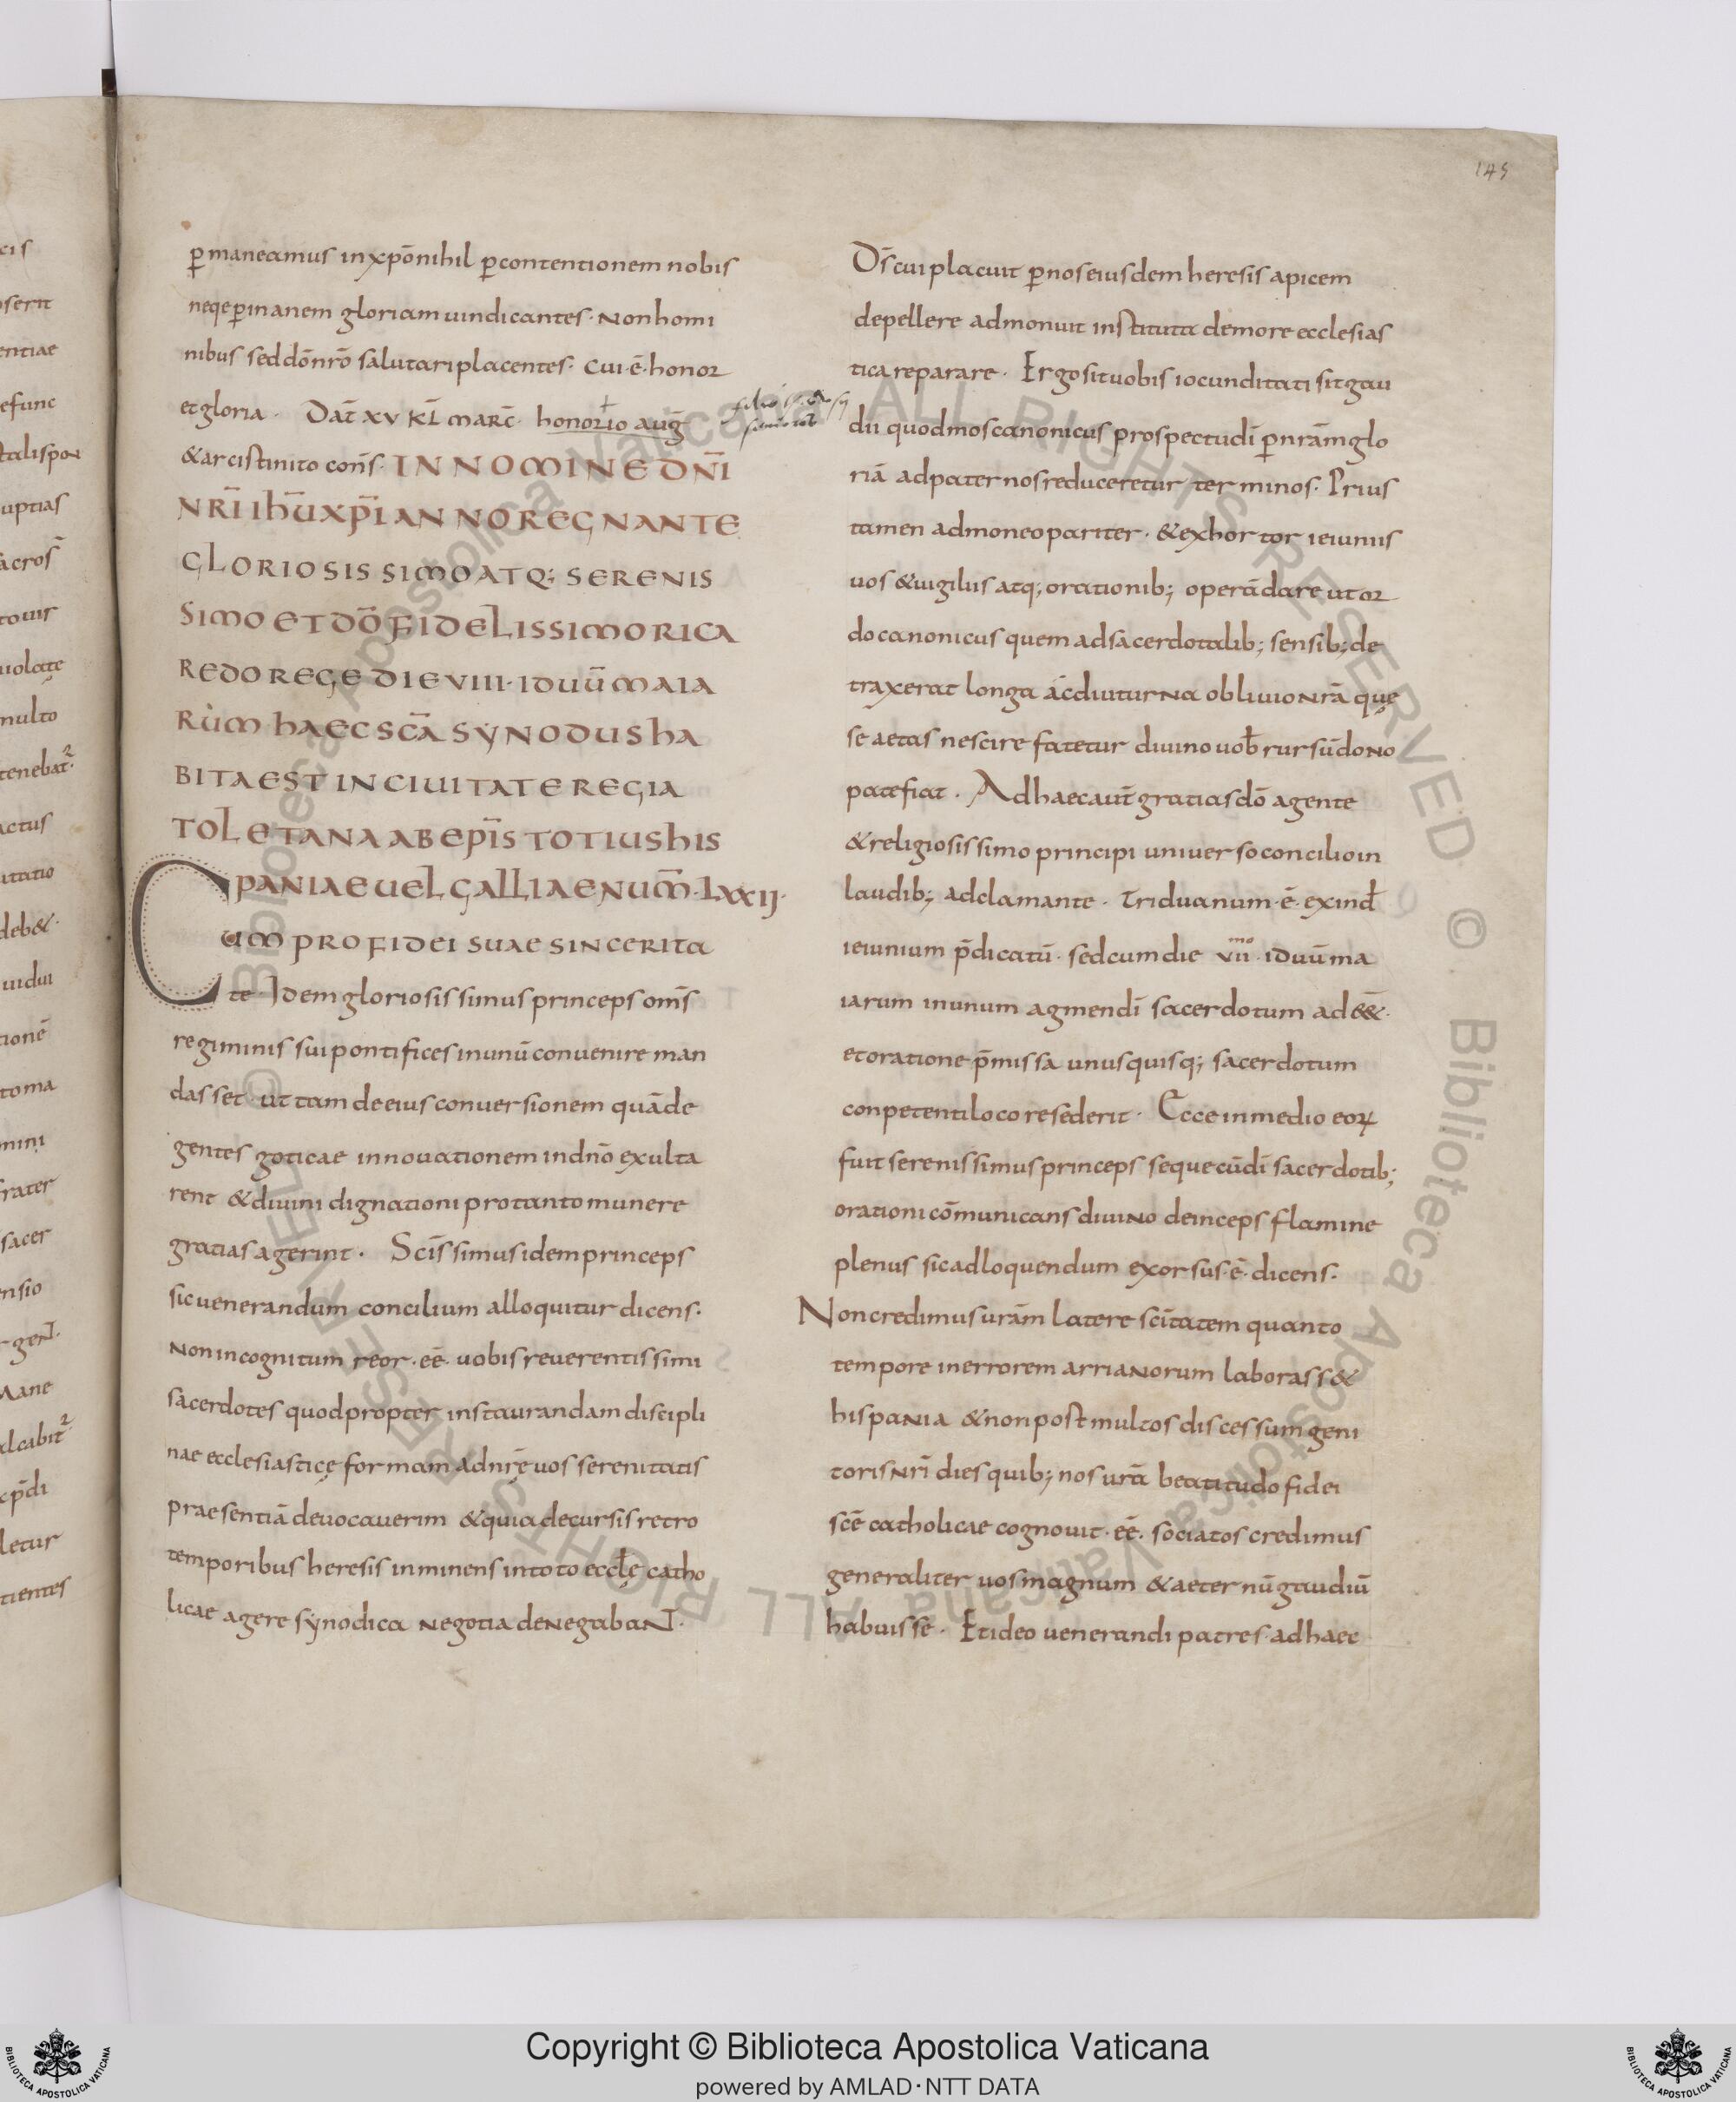 149
ꝑmaneamus in xp̄o nihil ꝑcontentionem nobis
neqe ꝑinanem gloriam uindicantes · Non homi
nibus sed dō nr̄o salutari placentes · cui · ē · honor
et gloria · Dat̄ xv Kl̄ marc̄ · honorio aug̅
& arcistinito con̄s · IN NOMINE DN̄I
NR̄I IHŪ XP̄I ANNO REGNANTE
GLORIOSISSIMO ATQ; SERENIS
SIMO ET DŌ FIDELISSIMO RICA
REDO REGE DIE VIII · IDUŪ MAIA
RUM HAEC SC̄A SYNODUS HA
BITA EST IN CIUITATE REGIA
TOLETANA AB EPĪS TOTIUS HIS
PANIAE UEL GALLIAE NUM̄ · LXXIJ ·
CUM PRO FIDEI SUAE SINCERITA
te · Idem gloriosissimus princeps om̄s
regiminis sui pontifices in unū conuenire man
dasset ut tam de eius conuersionem quā de
gentes goticae innouationem in dn̄o exulta
rent & diuini dignationi pro tanto munere
gratias agerint · Sc̄issimus idem princeps
sic uenerandum concilium alloquitur dicens ·
Non incognitum reor · eē · uobis reuerentissimi
sacerdotes quod propter instaurandam discipli
nae ecclesiasticę formam ad nr̄ę uos serenitatis
praesentiā deuocauerim & quia decursis retro
temporibus heresis inminens in toto eccl̄ę catho
licae agere synodica negotia denegabaNT ·
Ds̄ cui placuit ꝑ nos eiusdem heresis apicem
depellere admonuit instituta de more ecclesias
tica reparare · Ergo sit uobis iocunditati sit gau
dii quod mos canonicus prospectu dī ꝑ nrām glo
riā ad paternos reduceretur terminos · Prius
tamen admoneo pariter · & exhortor ieiuniis
uos & uigiliis atq; orationib; operā dare ut or
do canonicus quem ad sacerdotalib; sensib; de
traxerat longa ac̄ diuturna obliuio nrā quę
se aetas nescire fatetur diuino uob̄ rursū dono
patefiat · Ad haec aut̄ gratias dō agente
& religiosissimo principi uniuerso concilio in
laudib; adclamante · Triduanum · ē · exind̄
ieiunium p̄dicatū · sed cum die vii mo · iduū ma
iarum in unum agmen dī sacerdotum adeē& ·
et oratione p̄missa unusquisq; sacerdotum
conpetenti loco resederit · Ecce in medio eoꝝ
fuit serenissimus princeps seque cū dī sacerdotib;
orationi cōmunicans diuino deinceps flamine
plenus sic adloquendum exorsus · ē · dicens ·
Non credimus urām latere scītatem quanto
tempore in errorem arrianorum laborass&
hispania & non post multos discessum geni
toris nrī dies quib; nos urā beatitudo fidei
scē catholicae cognouit · eē · sociatos credimus
generaliter uos magnum & aeternū gaudiū
habuisse · Et ideo uenerandi patres adhaec
Copyright © Biblioteca Apostolica Vaticana
powered by AMLAD·NTT DATA